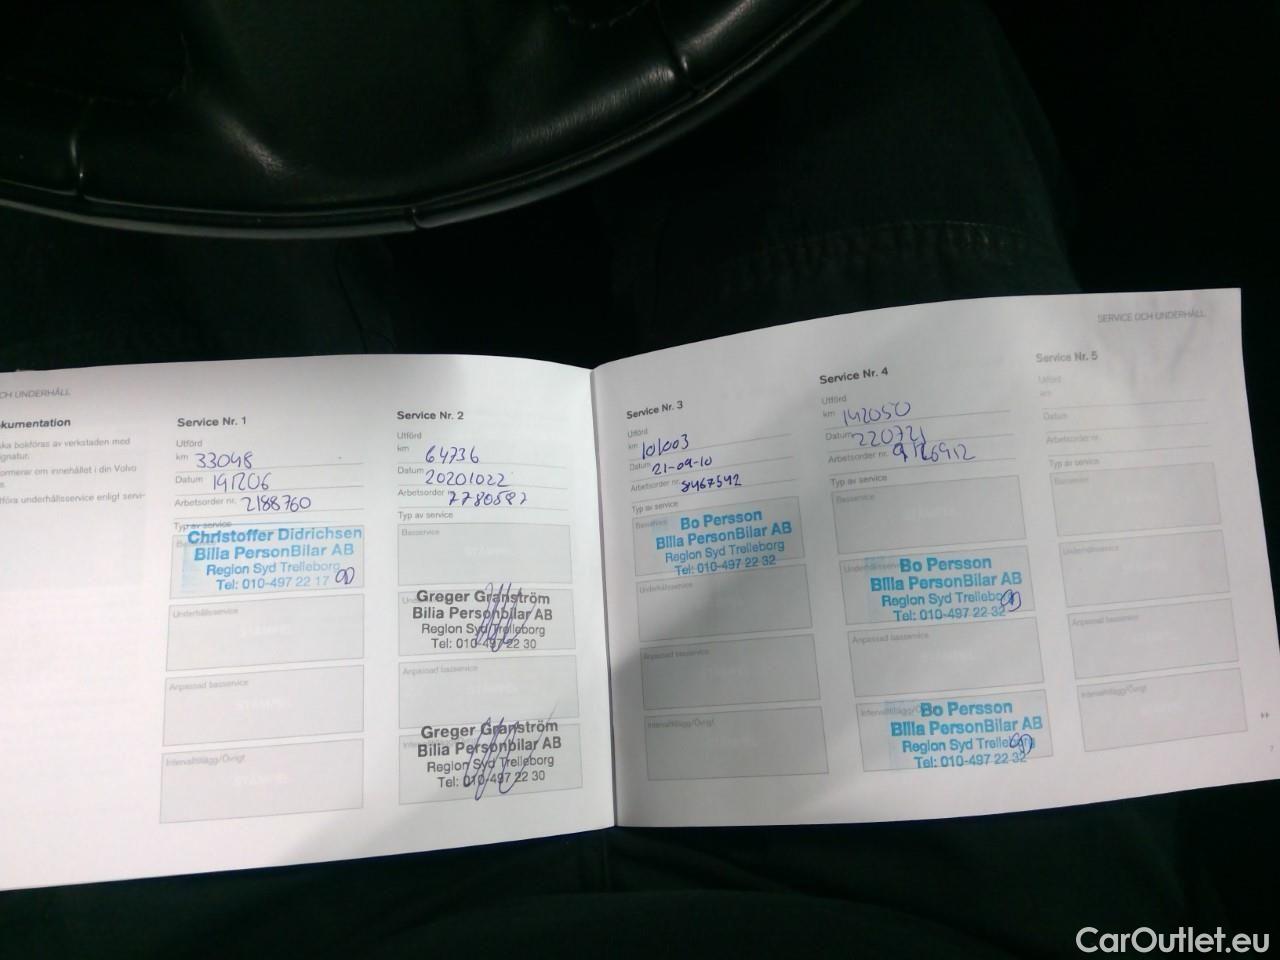 CH UNDERHÅLL
kumentation
ska bokföras av verkstaden med
gnatur.
ormerar om innehållet i din Volvo
s.
tföra underhållsservice enligt servi-
Service Nr. 1
Utförd
km 33048
Datum 191206
Arbetsorder nr. 2188760
Typ av service
Christoffer Didrichsen
Bilia PersonBilar AB
Region Syd Trelleborg
Tel: 010-497 22 17
Underhållsservice
Anpassad basservice
Intervalltillägg/Övrigt
Service Nr. 2
Utförd
km 64736
Datum 20201022
Arbetsorder 7780587
Typ av service
Basservice
Greger Granström
Bilia Personbilar AB
Region Syd Trelleborg
Tel: 010-497 22 30
Anpassad basservice
Greger Granström
Bilia Personbilar AB
Region Syd Trelleborg
Tel: 010-497 22 30
Service Nr. 3
Utförd
km 101003
Datum 21-09-10
Arbetsorder nr. 8467542
Typ av service
Bo Persson
Bilia PersonBilar AB
Region Syd Trelleborg
Tel: 010-497 22 32
Underhållsservice
Anpassad basservice
Intervalltillägg/Övrigt
SERVICE OCH UNDERHÅLL
Service Nr. 4
Utförd
km 142050
Datum 220721
Arbetsorder nr. 9126912
Typ av service
Basservice
Underhållsservice
Bo Persson
Bilia PersonBilar AB
Region Syd Trelleborg
Tel: 010-497 22 32
Anpassad basservice
Bo Persson
Bilia PersonBilar AB
Region Syd Trelleborg
Tel: 010-497 22 32
Service Nr. 5
Utförd
km
Datum
Arbetsorder nr.
Typ av service
Basservice
Underhållsservice
Anpassad basservice
Intervalltillägg/Övrigt
7
CarOutlet.eu